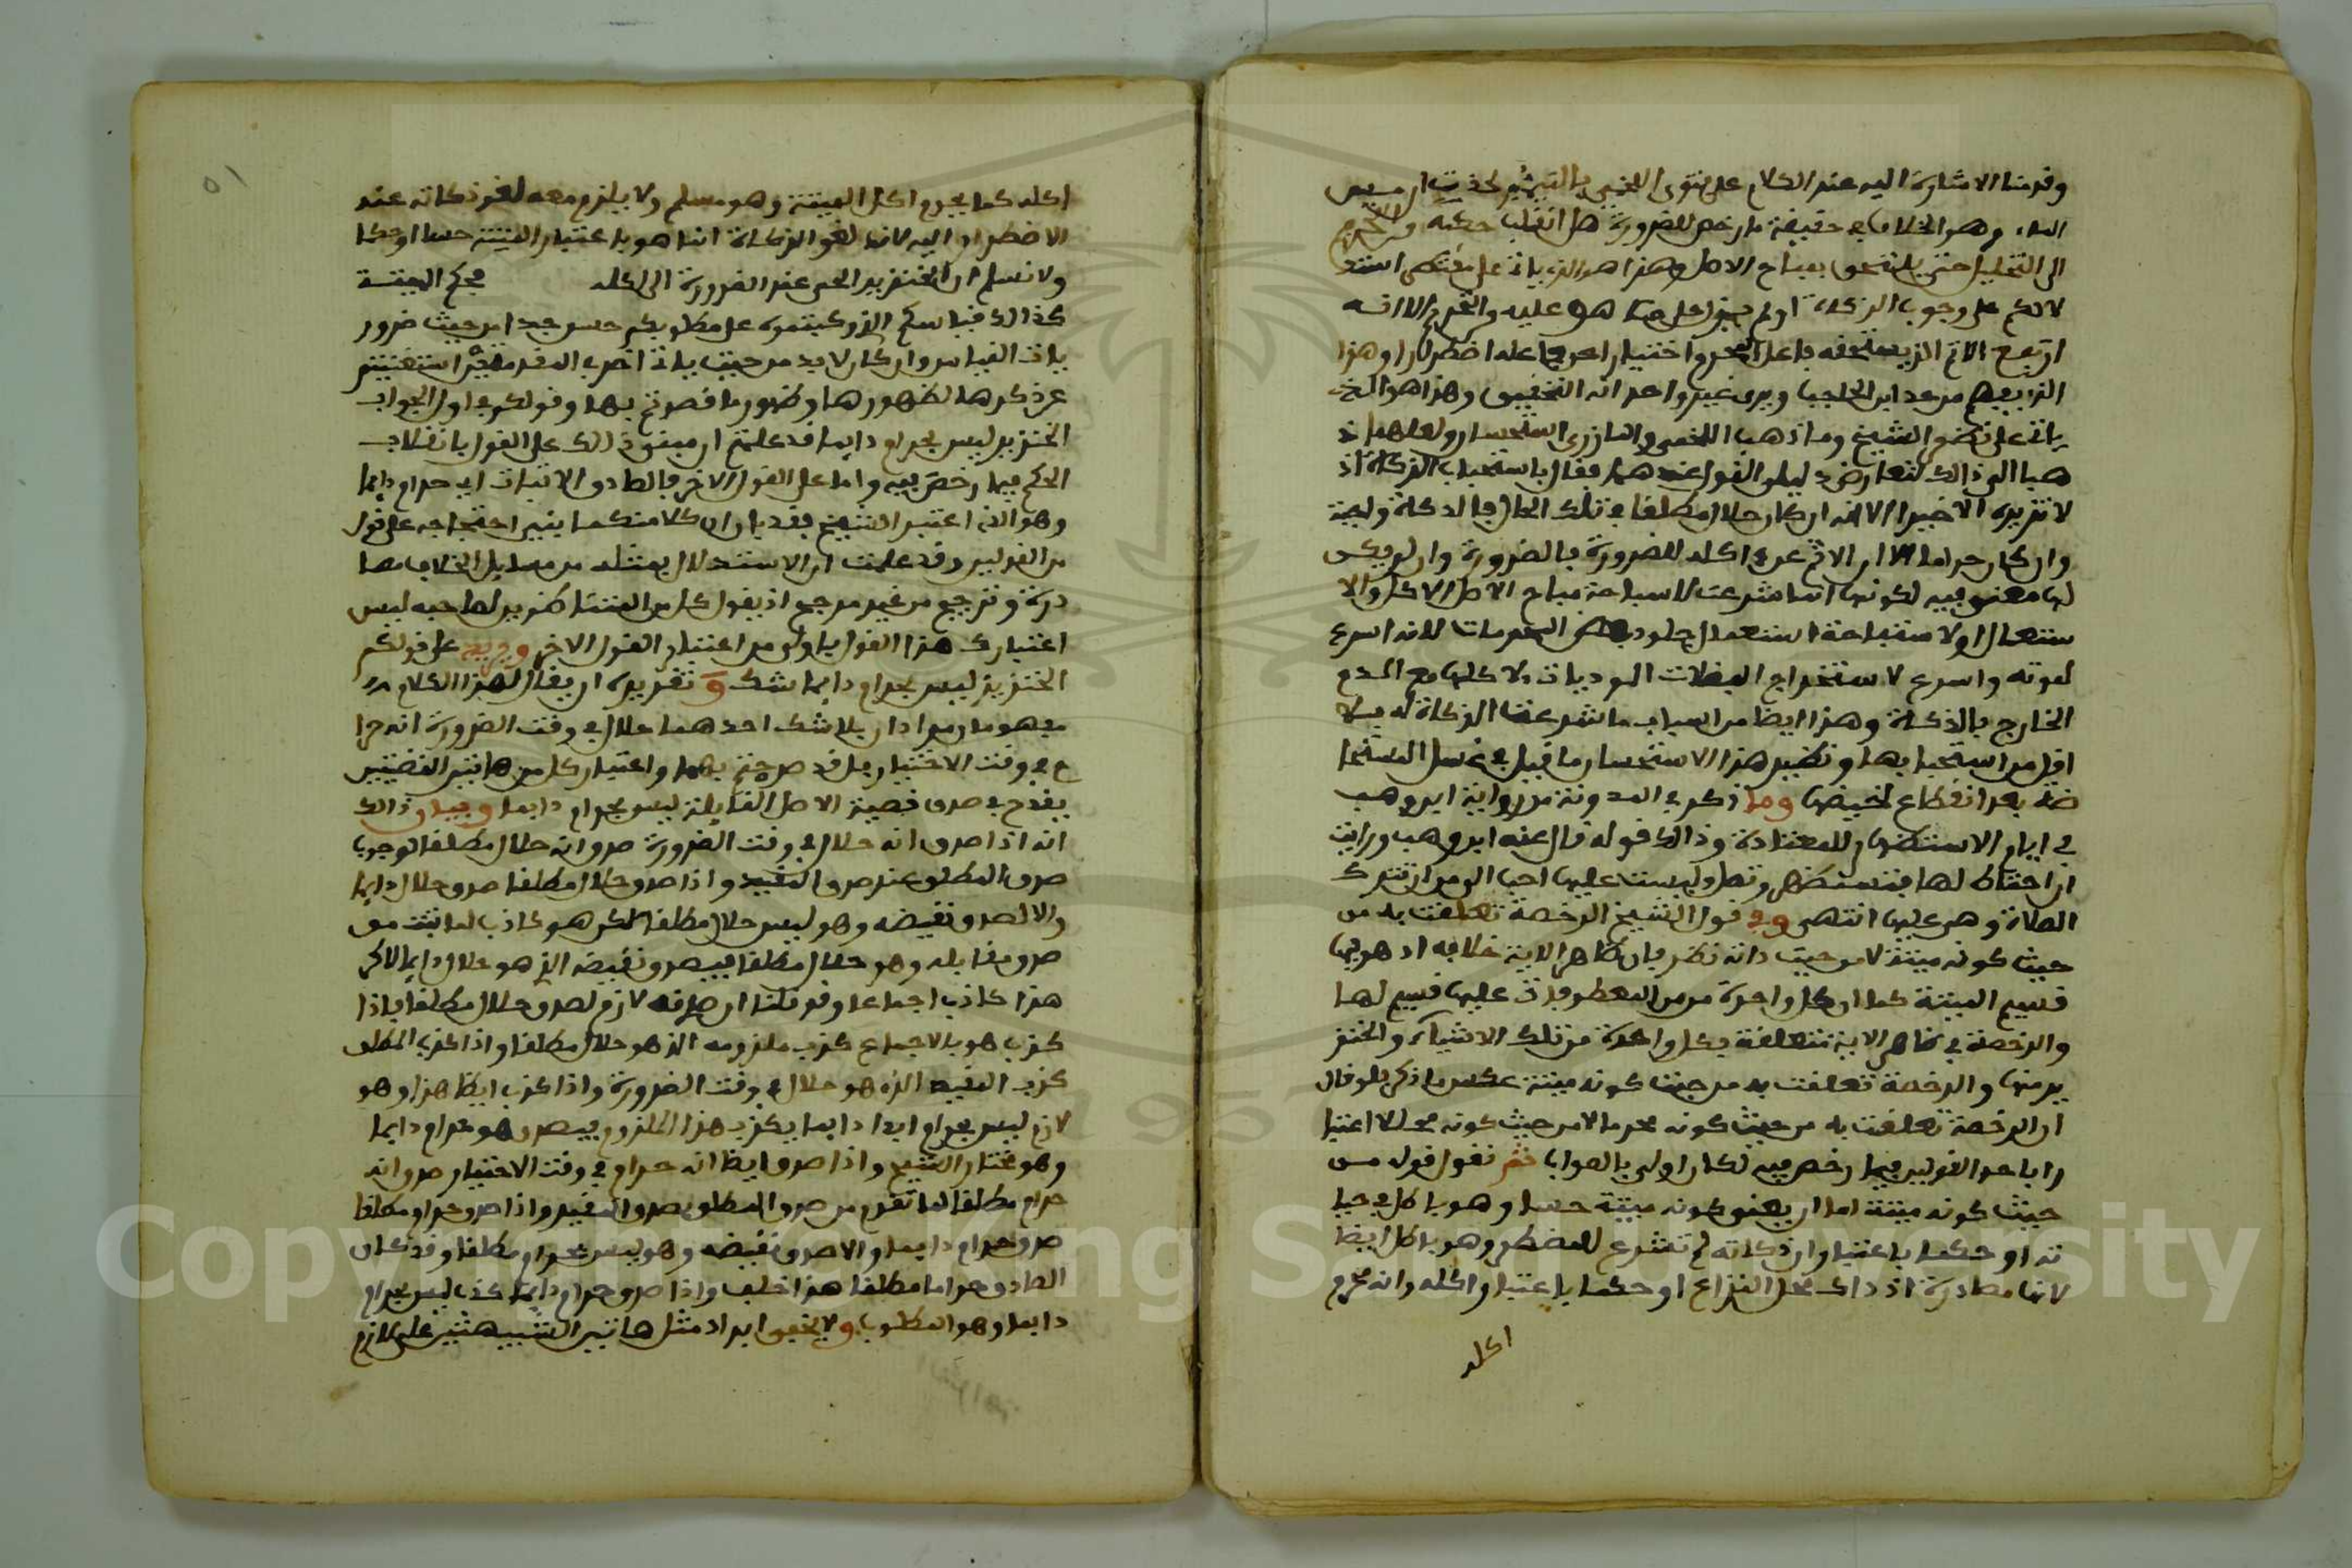 وقدمنا الاشارة اليه عند الكلام على فتوى اللخمي
الماء وهو الخلاف في حقيقة ما رخص للضرورة هل انقلب حكمه من التحريم
الى التحليل حتى يلتحق بمباح الاصل وهذا هو الذي ياتي على مقتضى استد
لالكم على وجوب الذكاة او لم يزل على ما هو عليه من التحريم الا انه
ارتفع الاثم الذي يستحقه فاعل المحرم اختيارا عن فاعله اضطرارا وهذا
الذي يفهم من حد ابن الحاجب ويرى غير واحد انه التحقيق وهذا هو الذي
ياتي على نص الشيخ وما ذهب اللخمي والمازري استحسان ولعلهما ذ
هبا الى ذلك لتعارض دليلي القول عندهما فقال باستحباب الذكاة اذ
لا تزيده الا خيرا لانه ان كان حلالا مطلقا في تلك الحال فالذكاة واجبة
وان كان حراما الا ان الاثم عن اكله للضرورة فالضرورة وان لم يكن
لها معنى فيه لكونها انما شرعت لاستباحة مباح الاصل لاكل والا
ستعمال او لاستباحة استعمال جلود بعض المحرمات لانه اسرع
لموته واسرع لاستخراج الفضلات الموديات ولا كلها مع الدم
الخارج بالذكاة وهذا ايضا من اسباب ما شرعت الذكاة له فلا
اقل من استحبابها ونظير هذا الاستحسان ما قيل في غسل المستحا
ضة بعد انقطاع الحيض وما ذكر في المدونة من رواية ابن وهب
في ايام الاستظهار للمعتادة وذلك قوله قال عنه ابن وهب ورايت
ان احتاط لها فتستظهر وتصلي وليست عليها احب الي من ان تترك
الصلاة وهي عليها انتهى وفي قول الشيخ الرخصة تعلقت به من
حيث كونه ميتة لا من حيث ذاته نظر فان ظاهر الاية خلافه اذ هو فيها
قسيم الميتة كما ان كل واحدة من المعطوفات عليها قسيم لها
والرخصة في ظاهر الاية متعلقة بكل واحدة من تلك الاشياء والخنز
ير منها والرخصة تعلقت به من حيث كونه ميتة عكس ما ذكر فلو قال
ان الرخصة تعلقت به من حيث كونه محرما لا من حيث كونه محللا اعتبا
را باحد القولين فيما رخص فيه لكان اولى بالصواب ثم نقول قوله من
حيث كونه ميتة اما ان يعني كونه ميتة حسا وهو باطل في حيا
ته او حكما باعتبار ان ذكاته لم تشرع للمضطر وهو باطل ايضا
لانها مصادرة اذ ذاك محل النزاع او حكما باعتبار اكله وانه محرم
اكله
٥١
اكله كما يحرم اكل الميتة وهو مسلم ولا يلزم معه لغو ذكاته عند
الاضطرار اليه لان لغو الذكاة انما هو باعتبار الميتة حسا او حكما
ولا نسلم ان الخنزير الحي عند الضرورة الى اكله في حكم الميتة
كذلك قياسكم الذي كيتموه على مطلوبكم حسن جدا من حيث ضرور
يات القياس وان كان لا بد من حيث ياتي اخرى المقدمتين استغنيتم
عن ذكرها لظهورها وظهور ما قصدتم بها وقولكم في اول الجواب
الخنزير ليس بحرام دايما قد علمتم ان مبنى ذلك على القول بانقلاب
الحكم فيما رخص فيه واما على القول الاخر فالصادق الاثبات اي حرام دايما
وهو الذي اعتبر الشيخ فقد بان ان كلا منكما يبني احتجاجه على قول
من القولين وقد علمت ان الاستدلال بمثله من مسايل الخلاف مصا
درة وترجيح من غير مرجح اذ يقول كل من المتناظرين لصاحبه ليس
اعتبارك هذا القول باولى من اعتبار القول الاخر على قولكم
الخنزير ليس بحرام دايما شك وتقريره ان يقال لهذا الكلام
مفهومان مرادان بلا شك احدهما حلال في وقت الضرورة انه حرا
م في وقت الاختيار بل قد صرحتم بهما واعتبار كل من هاتين القضيتين
يقدح في صدق قضية الاصل القايلة ليس بحرام دايما وبيان ذلك
انه اذا صدق انه حلال في وقت الضرورة صدق انه حلال مطلقا لوجوب
صدق المطلق عند صدق المقيد واذا صدق حلال مطلقا صدق حلال دايما
والا لصدق نقيضه وهو ليس حلال مطلقا لكن هو كاذب لما ثبت من
صدق مقابله وهو حلال مطلقا فيصدق نقيضه الذي هو حلال دايما لاكن
هذا كاذب اجماعا وقد قلنا ان صدقه لازم لصدق حلال مطلقا فاذا
كذب هو بالاجماع كذب ملزومه الذي هو حلال مطلقا واذا كذب المطلق
كذب المقيد الذي هو حلال في وقت الضرورة واذا كذب ايضا هذا وهو
لازم ليس بحرام ابدا دايما يكذب هذا الملزوم فيصدق هو حرام دايما
وهو مختار الشيخ واذا صدق ايضا انه حرام في وقت الاختيار صدق انه
حرام مطلقا لما تقدم من صدق المطلق بصدق المقيد واذا صدق حرام مطلقا
صدق حرام دايما والا صدق نقيضه وهو ليس بحرام مطلقا وقد كان
الصادق حراما مطلقا هذا خلف واذا صدق حرام دايما كذب ليس بحرام
دايما وهو المطلوب ولا يخفى ايراد مثل هاتين الشبهتين على لازم
Copyright © King Saud University
1957